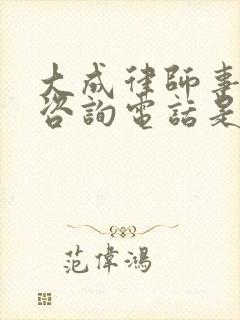 大成律師事
咨詢電話是
范偉鴻